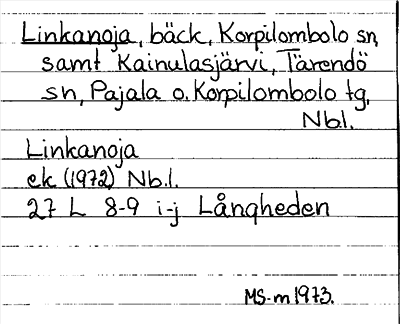 Linkanoja, bäck, Korpilombolo sn,
samt Kainulasjärvi, Tärendö
sn, Pajala o. Korpilombolo tg,
Nb.l.
Linkanoja
ek (1972) Nb.l.
27 L 8-9 i-j Långheden
MS-m 1973.